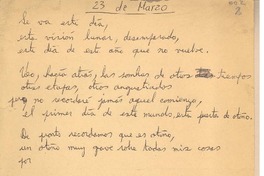 23 de Marzo
2
Se va este día,
este visión lunar, desesperado,
este día de este año que no vuelve.
Veo, hacia atrás, las sombras de otros tiempos
otras etapas, otros angustiados
pero no recordaré jamás aquel comienzo,
el primer día de este mundo, esta puerta de otoño.
De pronto recordamos que es otoño,
un otoño muy grave rota todas mis cosas
por